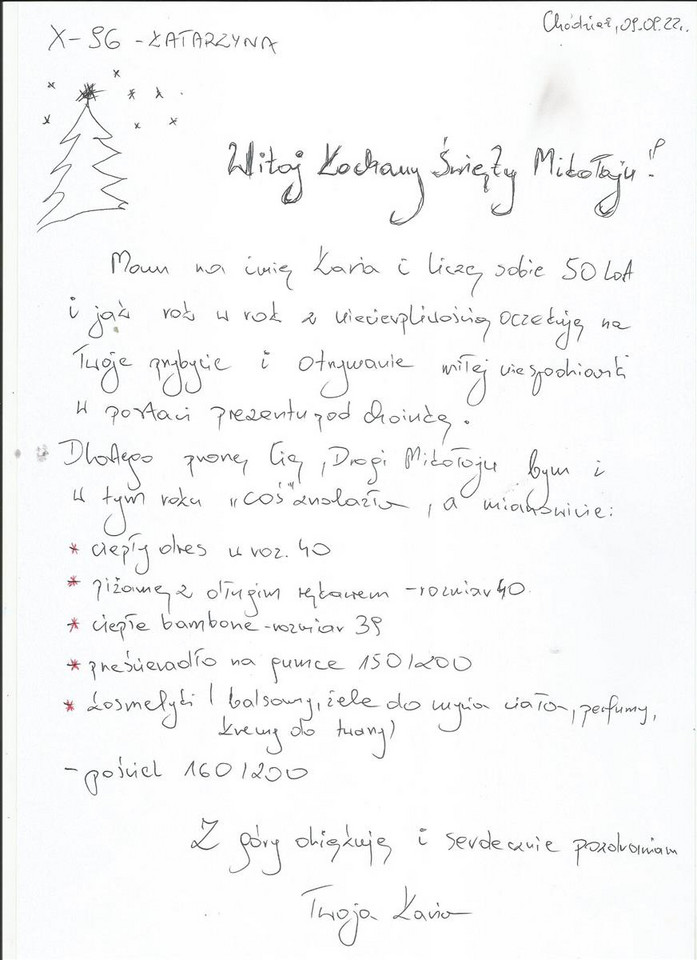 Chodzież, 09.09.22r.
X-96 - KATARZYNA
Witaj Kochany Święty Mikołaju!
Mam na imię Kasia i liczę sobie 50 lat
i jak rok w rok z niecierpliwością oczekuję na
Twoje przybycie i otrzymanie miłej niespodzianki
w postaci prezentu pod choinkę.
Dlatego proszę Cię, Drogi Mikołaju bym i
w tym roku „coś" znalazła, a mianowicie:
* ciepły dres w roz. 40
* piżamę z długim rękawem - rozmiar 40
* ciepłe bambone - rozmiar 39
* prześcieradło na gumce 150/200
* kosmetyki (balsamy, żele do mycia ciała, perfumy,
kremy do twarzy)
- pościel 160/200
Z góry dziękuję i serdecznie pozdrawiam
Twoja Kasia